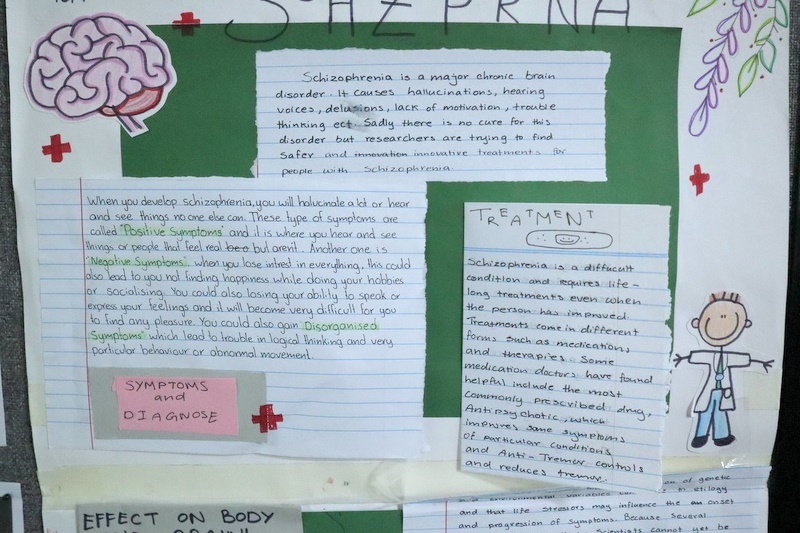 Schizophrenia is a major chronic brain
disorder. It causes hallucinations, hearing
voices, delusions, lack of motivation, trouble
thinking ect. Sadly there is no cure for this
disorder but researchers are trying to find
safer and innovation innovative treatments for
people with Schizophrenia
When you develop schizophrenia, you will halucinate a lot or hear
and see things no one else can. These type of symptoms are
called "Positive Symptoms" and it is where you hear and see
things or people that feel real but arent. Another one is
"Negative Symptoms". when you lose intrest in everything, this could
also lead to you not finding happiness while doing your hobbies
or socialising. You could also losing your ability to speak or
express your feelings and it will become very difficult for you
to find any pleasure. You could also gain Disorganised
Symptoms" which lead to trouble in logical thinking and very
particular behaviour or abnormal movement.
SYMPTOMS
and
DIAGNOSE
TREATMENT
Schizophrenia is a diffucult
condition and requires life-
long treatments even when
the person has improved.
Treatments come in different
forms such as medications
and therapies. Some
medication doctors have found
helpful include the most
commonly prescribed drug,
Antipsychotic, which
improves some symptoms
of particular conditions
and Anti-Tremor controls
and reduces tremor.
EFFECT ON BODY
of genetic
variables
and that life stressors may influence the onset
and progression of symptoms. Because several
Scientists cannot yet be